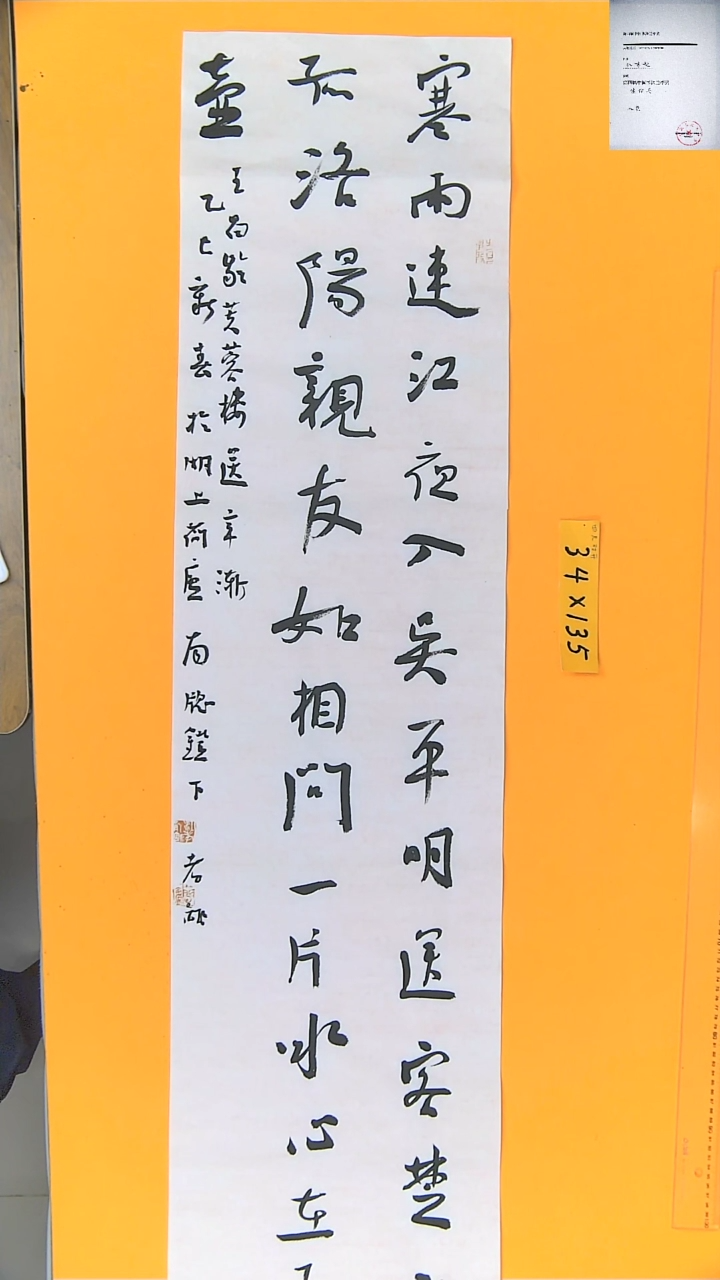 寒雨連江夜入吴平明送客楚
孤洛陽親友如相問一片冰心在
壺
王昌齡芙蓉楼送辛漸
乙巳新春於湖上荷廬南牕鐙下
34×135